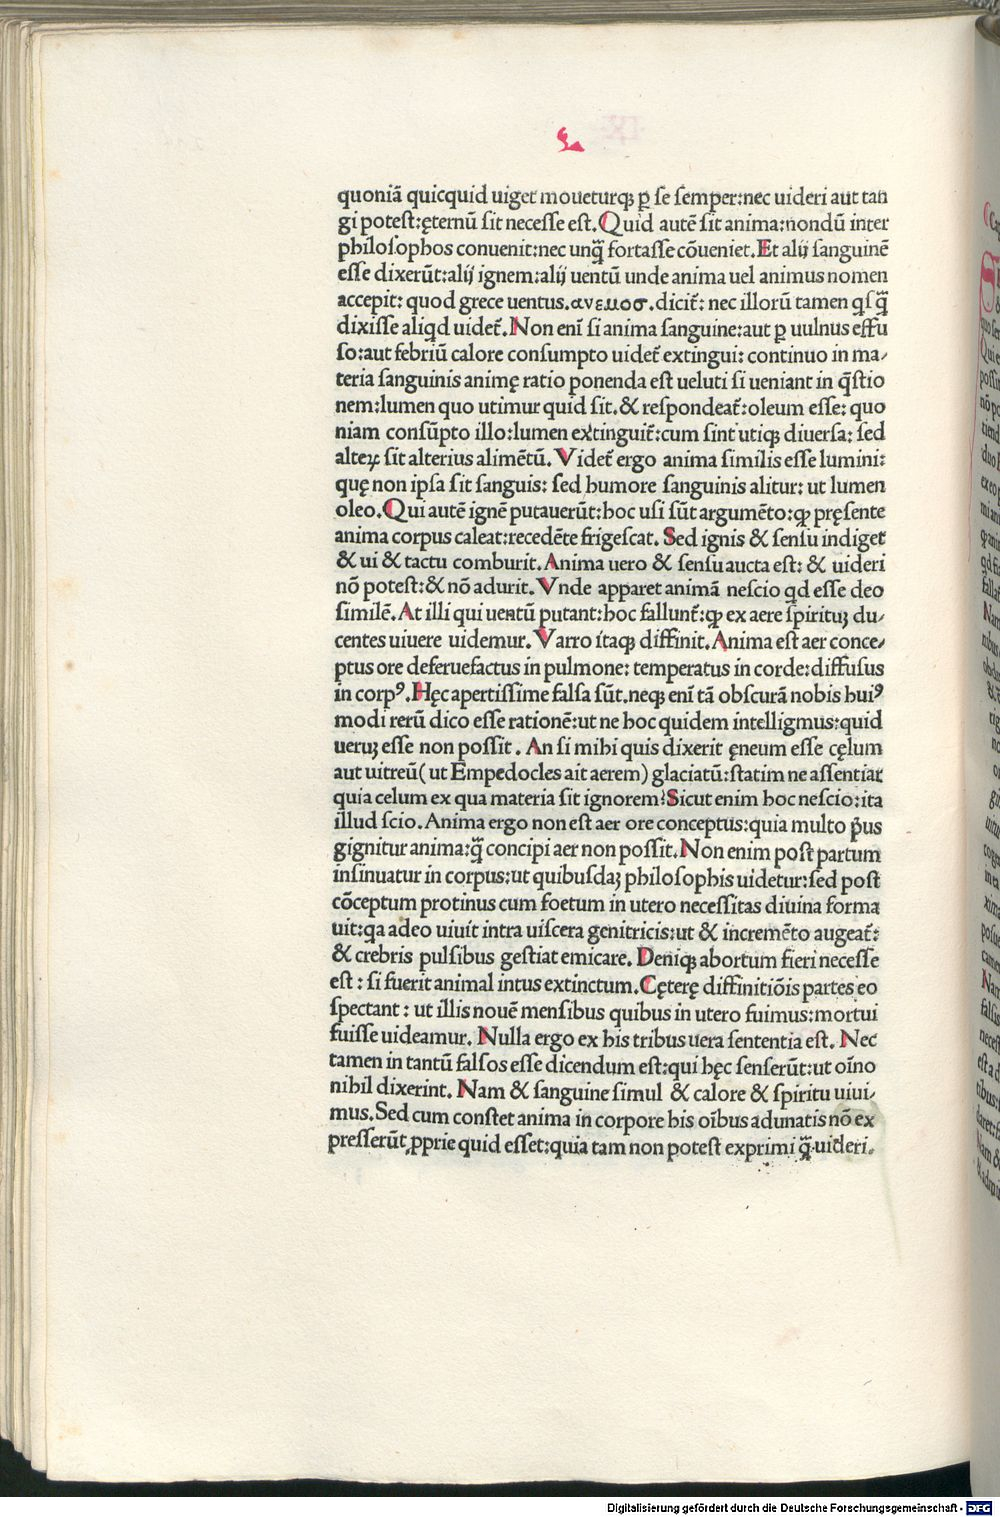 quoniã quicquid uiget moueturqꝫ ꝑ se semper:nec uideri aut tan
gi potest:ęternũ sit necesse est.Quid autẽ sit anima:nondũ inter
philosophos conuenit:nec unq̃ fortasse cõueniet.Et alij sanguinẽ
esse dixerũt:alij ignem:alij uentũ unde anima uel animus nomen
accepit: quod grece uentus.ανεμοσ.dicit̃: nec illorũ tamen qͥsq̃
dixisse aliqͥd uidet̃.Non enĩ si anima sanguine:aut ꝑ uulnus effu
so:aut febriũ calore consumpto uidet̃ extingui: continuo in ma⸗
teria sanguinis animę ratio ponenda est ueluti si ueniant in q̃stio
nem:lumen quo utimur quid sit.& respondeat̃:oleum esse: quo
niam consũpto illo:lumen extinguit̃:cum sint utiqꝫ diuersa: sed
alteꝝ sit alterius alimẽtũ.Videt̃ ergo anima similis esse lumini:
quę non ipsa sit sanguis: sed humore sanguinis alitur: ut lumen
oleo.Qui autẽ ignẽ putauerũt:hoc usi sũt argumẽto:ꝙ pręsente
anima corpus caleat:recedẽte frigescat.Sed ignis & sensu indiget
& ui & tactu comburit.Anima uero & sensu aucta est: & uideri
nõ potest:& nõ adurit.Vnde apparet animã nescio qͥd esse deo
similẽ.At illi qui uentũ putant:hoc fallunt̃:ꝙ ex aere spirituꝫ du⸗
centes uiuere uidemur.Varro itaqꝫ diffinit.Anima est aer conce⸗
ptus ore deferuefactus in pulmone: temperatus in corde:diffusus
in corpꝰ.Hęc apertissime falsa sũt.neqꝫ enĩ tã obscurã nobis huiꝰ
modi rerũ dico esse rationẽ:ut ne hoc quidem intelligmus:quid
ueruꝫ esse non possit. An si mihi quis dixerit ęneum esse cęlum
aut uitreũ( ut Empedocles ait aerem) glaciatũ:statim ne assentiar
quia celum ex qua materia sit ignorem?Sicut enim hoc nescio:ita
illud scio.Anima ergo non est aer ore conceptus:quia multo p̃us
gignitur anima:q̃ concipi aer non possit.Non enim post partum
insinuatur in corpus:ut quibusdaꝫ philosophis uidetur:sed post
cõceptum protinus cum foetum in utero necessitas diuina forma
uit:qa adeo uiuit intra uiscera genitricis:ut & incremẽto augeat̃:
& crebris pulsibus gestiat emicare.Deniqꝫ abortum fieri necesse
est: si fuerit animal intus extinctum.Cęterę diffinitiõis partes eo
spectant: ut illis nouẽ mensibus quibus in utero fuimus:mortui
fuisse uideamur. Nulla ergo ex his tribus uera sententia est. Nec
tamen in tantũ falsos esse dicendum est:qui hęc senserũt:ut oĩno
nihil dixerint. Nam & sanguine simul & calore & spiritu uiui⸗
mus.Sed cum constet anima in corpore his oĩbus adunatis nõ ex
presserũt ꝓprie quid esset:quia tam non potest exprimi q̃ uideri.
Digitalisierung gefördert durch die Deutsche Forschungsgemeinschaft - DFG